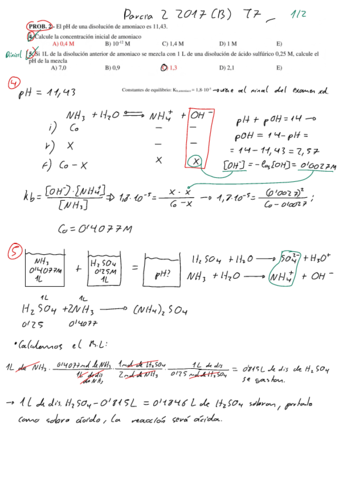 Parcial 2 2017 (B) T7 1/2
PROB. 2.- El pH de una disolución de amoniaco es 11,43.
4. Calcule la concentración inicial de amoniaco
A) 0,4 M B) 10⁻¹² M C) 1,4 M D) 1 M E)
5. Si 1L de la disolución anterior de amoniaco se mezcla con 1 L de una disolución de ácido sulfúrico 0,25 M, calcule el
pH de la mezcla
A) 7,0 B) 0,9 C) 1,3 D) 2,1 E)
④ Constantes de equilibrio: K = 1,8·10⁻⁵ → viene al final del examen
pH = 11,43
NH₃ + H₂O ⇌ NH₄⁺ + OH⁻
i) C₀ – –
r) x – –
f) C₀ – x x x
pH + pOH = 14 →
pOH = 14 – pH =
= 14 – 11,43 = 2,57
[OH⁻] = –log[OH] = 0'0027M
Kb = [OH⁻]·[NH₄⁺] / [NH₃] ⇒ 1,8·10⁻⁵ = x · x / C₀ – x → 1,8·10⁻⁵ = (0'0027)² / C₀ – 0'0027 ;
C₀ = 0'4077M
⑤ NH₃ 0'4077M 1L + H₂SO₄ 0'25M 1L = pH?
H₂SO₄ + H₂O → SO₄²⁻ + H₃O⁺
NH₃ + H₂O → NH₄⁺ + OH⁻
1L 1L
H₂SO₄ + 2NH₃ → (NH₄)₂SO₄
0'25 0'4077
• Calculamos el R.L:
1L de NH₃ · 0'4077 mol de NH₃ / 1L de dis de NH₃ · 1 mol de H₂SO₄ / 2 mol de NH₃ · 1L de dis / 0'25 mol de H₂SO₄ = 0'815L de dis de H₂SO₄
se gastan.
→ 1L de dis H₂SO₄ – 0'815L = 0'1846L de H₂SO₄ sobran, por tanto
como sobra ácido, la reacción será ácida.